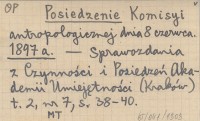 OP
Posiedzenie Komisyi
antropologicznej dnia 8 czerwca.
1897 a. — Sprawozdania
z Czynności i Posiedzeń Aka-
demii Umiejętności (Kraków)
t. 2, nr 7, s. 38-40.
MT